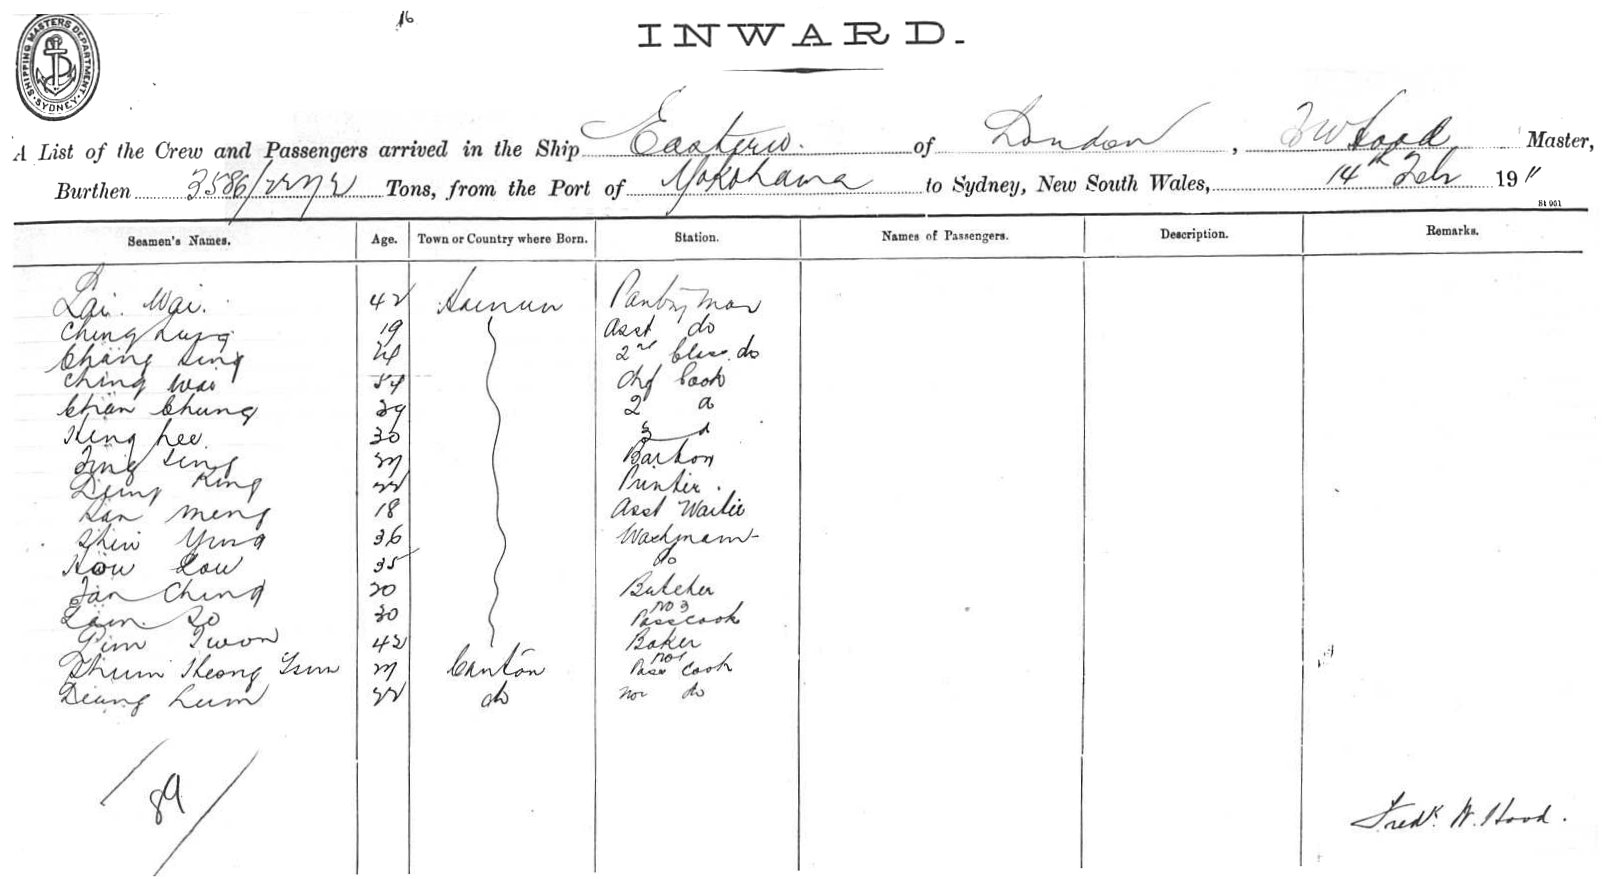 16
INWARD.
SHIPPING MASTERS DEPARTMENT SYDNEY
A List of the Crew and Passengers arrived in the Ship Eastern. of London, F W Hood Master,
Burthen 3586/2272 Tons, from the Port of Yokohama to Sydney, New South Wales, 14th Feb 1911
St 961
Seamen's Names. Age. Town or Country where Born. Station. Names of Passengers. Description. Remarks.
Lai Wai. 42 Hainan Pantry man
Ching Lung 19 Asst do
Chang Sing 24 2nd Class do
Ching Wai 54 Chf Cook
Chan Chung 39 2
Hing Lee 30 3
Ting Sing 27
King 22 Printer.
Han Meng 18 Asst Waiter
Ying 36
How Low 35 do
Tan Ching 20 Butcher
Lam So 30 No 3 Pass Cook
42 Baker
27 Canton Pass Cook
Leung Lum 22 do do
89
Fredk. W. Hood.